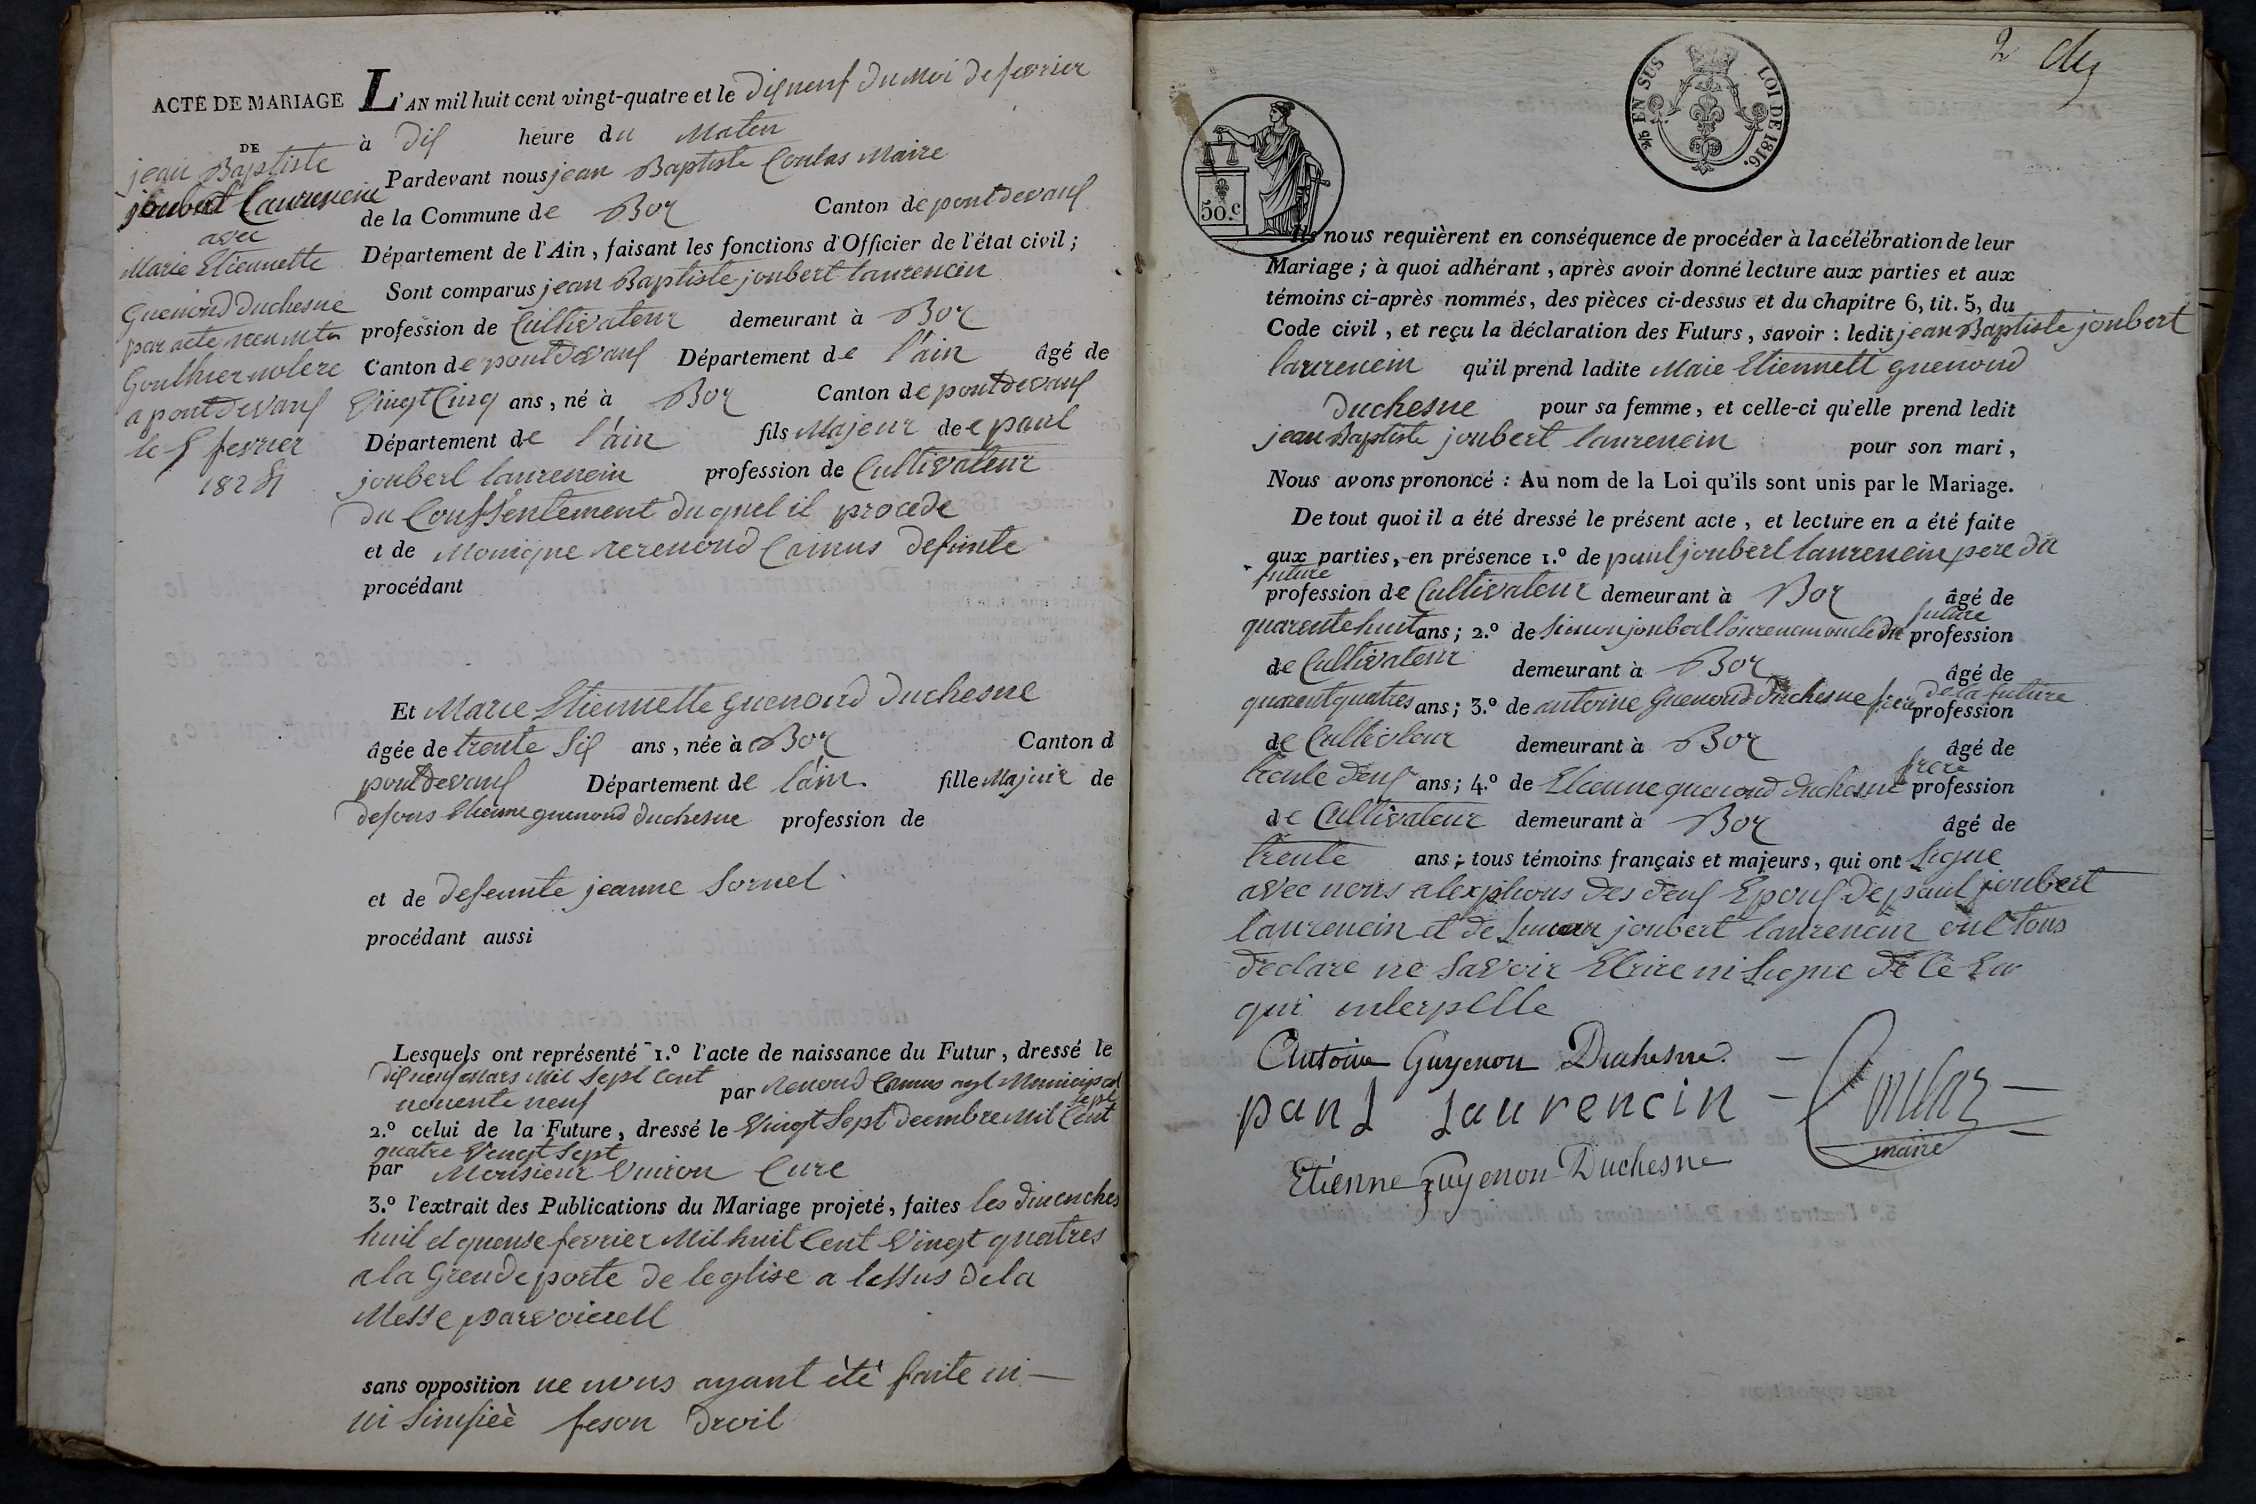 ACTE DE MARIAGE
DE
jean Baptiste
joubert Laurencin
avec
Marie Etiennette
Guenond Duchesne
par acte
Gouthier notere
a pontdevaux
le 5 fevrier
1824
L'AN mil huit cent vingt-quatre et le dixneuf du Moi de fevrier
à dix heure du Maten
Pardevant nous jean Baptiste Coulas Maire
de la Commune de Boz Canton de pontdevaux
Département de l'Ain, faisant les fonctions d'Officier de l'état civil;
Sont comparus jean Baptiste joubert laurencin
profession de Cultivateur demeurant à Boz
Canton de pontdevaux Département de l'ain âgé de
Vingt Cinq ans, né à Boz Canton de pontdevaux
Département de l'ain fils Majeur de e paul
joubert laurencin profession de Cultivateur
du Conssentement duquel il procede
et de Monique renoud Camus defunte
procédant
Et Marie Etiennette guenoud duchesne
âgée de trente Six ans, née à Boz Canton d
pontdevaux Département de l'ain fille Majure de
defous Etienne guenoud duchesne profession de
et de defeunte jeanne Sornet
procédant aussi
Lesquels ont représenté 1.º l'acte de naissance du Futur, dressé le
dixneuf Mars Mil Sept Cent
nonente neuf par Renoud Camus agt Municipal
2.º celui de la Future, dressé le Vingt Sept decembre Mil Sept Cent
quatre Vengt Sept
par Monsieur Cure
3.º l'extrait des Publications du Mariage projeté, faites les dimenches
huit et quense fevrier Mil huit Cent Vingt quatres
a la Grende porte de leglise a lessus de la
Messe
sans opposition ne nous ayant été faite ni —
ni feson droit
2
50.c
EN SUS LOI DE 1816.
Ils nous requièrent en conséquence de procéder à la célébration de leur
Mariage; à quoi adhérant, après avoir donné lecture aux parties et aux
témoins ci-après nommés, des pièces ci-dessus et du chapitre 6, tit. 5, du
Code civil, et reçu la déclaration des Futurs, savoir: ledit jean Baptiste joubert
laurencin qu'il prend ladite Maie Etiennett guenoud
duchesne pour sa femme, et celle-ci qu'elle prend ledit
jean Baptiste joubert laurencin pour son mari,
Nous avons prononcé: Au nom de la Loi qu'ils sont unis par le Mariage.
De tout quoi il a été dressé le présent acte, et lecture en a été faite
aux parties, en présence 1.º de paul joubert laurencin pere du
future
profession de Cultivateur demeurant à Boz âgé de
quarente huit ans; 2.º de Simon joubert laurencin oncle du future profession
de Cultivateur demeurant à Boz âgé de
quarent quatres ans; 3.º de antoine Guenoud duchesne frere de la future profession
de Cultivateur demeurant à Boz âgé de
trente deux ans; 4.º de Etienne guenoud duchesne frere profession
de Cultivateur demeurant à Boz âgé de
trente ans; tous témoins français et majeurs, qui ont Signe
avec nous des deux Epoux de paul joubert
laurencin et de Simon joubert laurencin ont tous
declare ne Savoir Ecrire ni Signe de Ce
qui interpelle
Antoine Guyenon Duchesne.
paul laurencin
Coulas
maire
Etienne guyenon Duchesne